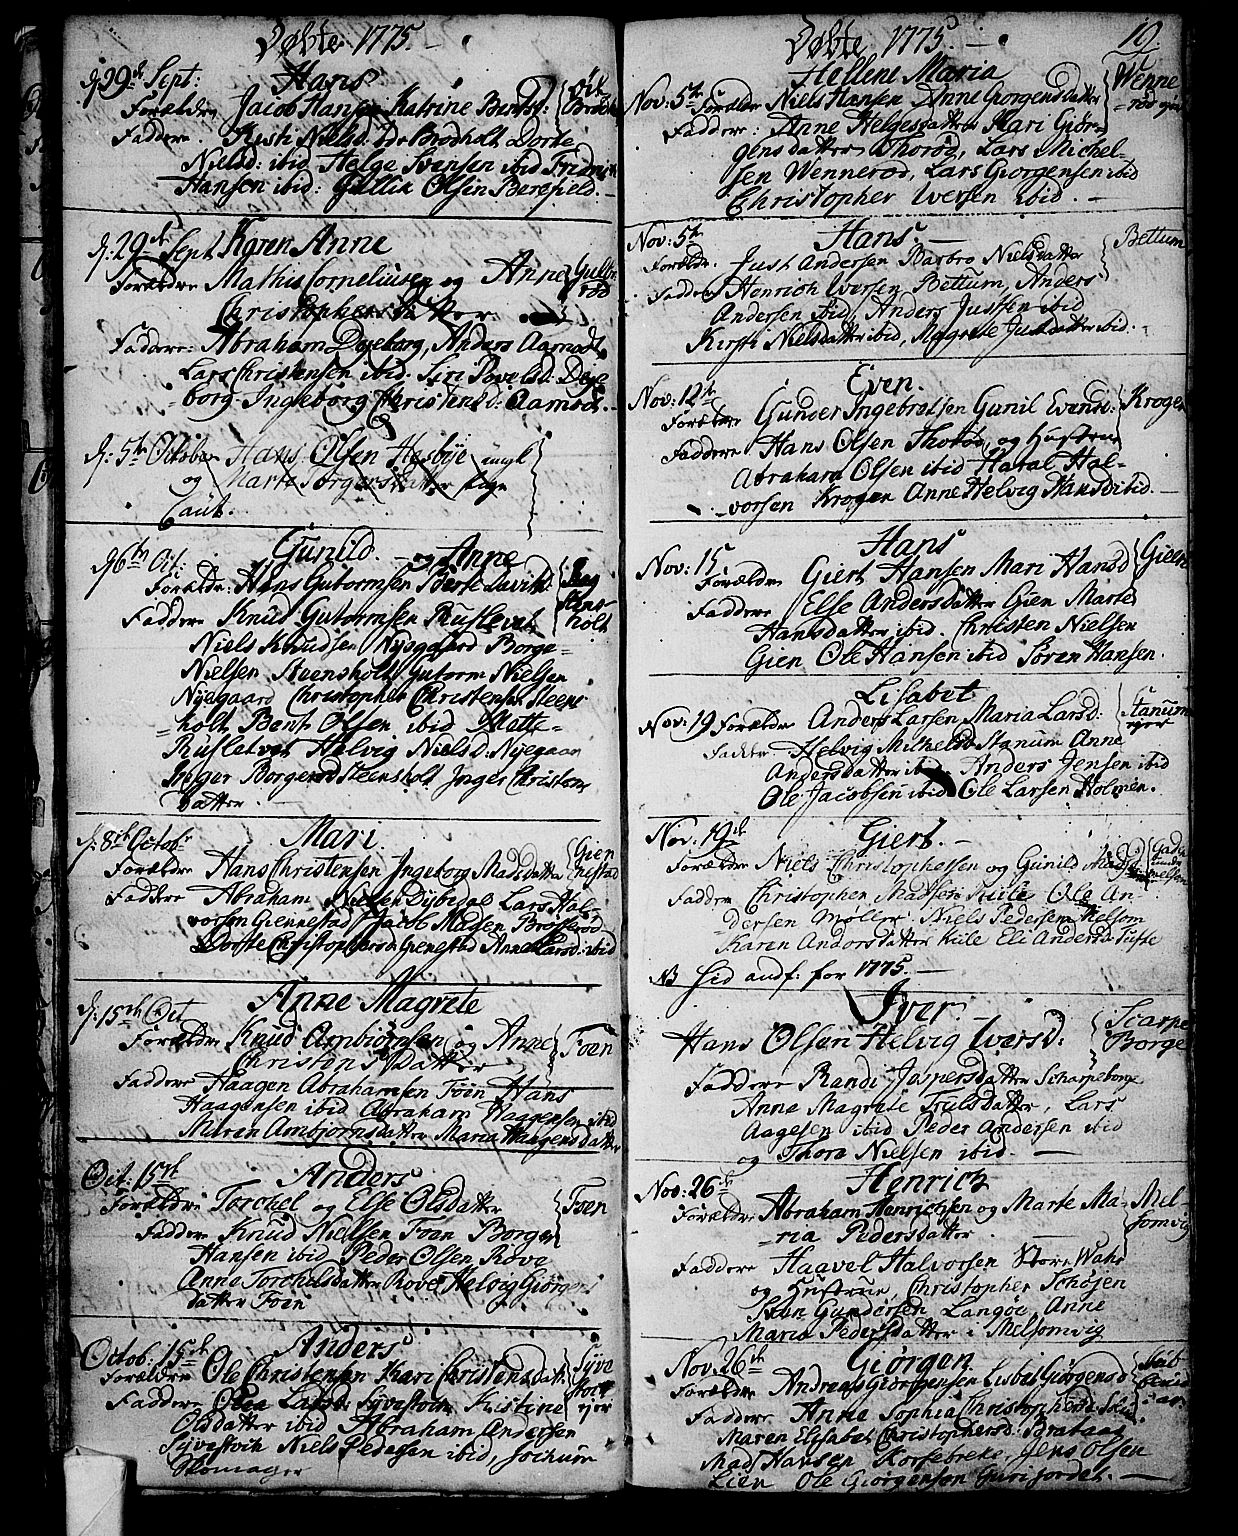 Døbte 1775.
d: 29de Sept: Hans
Forældre Jacob Hansen Katrine Bentsd:
Faddere Kirsti Nielsd: Brodholt Dorte
Nielsd: ibid Helge Svensen ibid Fredrich
Hansen ibid: Gullik Olsen Berefield.
d: 29de Sept Karen Anne
Forældre Mathis Corneliusen og Anne Gullerød
Christophersdatter
Faddere: Abraham Dyeborg, Anders Aamodt
Lars Christensen ibid. Siri Povelsd: Dyeborg
Ingeborg Christensd: Aamodt.
d: 5te October Hans Olsen Hesbye ungl
og Marte Torgersdatter
d 6te Oct: Gunild. og Anne
Forældre: Hans Gutormsen Berte Larsd Steensholt
Faddere Knud Gutormsen Rustetvet
Niels Knudsen Nyegaard Borge
Nielsen Steensholt Gutorm Nielsen
Nyegaard Christopher Christensen Steensholt
Bent Olsen ibid Mette
Rustetvet Helvig Nielsd: Nyegaar
Inger Borgersd Steensholt Inger Christensdatter.
d: 8de Octob: Mari
Forældre Hans Christensen Ingeborg Madsdatter Giennestad
Faddere Abraham Nielsen Dybedal Lars Halvorsen
Giennestad Jacob Madsen Brosserød
Dorte Christophersd Genestad Anne Larsd: ibid
d: 15de Oct Anne Magrete
Forældre Knud Ambiørnsen og Anne Foen
Christensdatter
Faddere Haagen Abrahamsen Foen Hans
Haagensen ibid Abraham Haagensen ibid
Maren Ambjørnsdatter Maria Haagensdatter
Oct: 15de Anders
Forældre Torchel og Else Olsdatter Foen
Faddere Knud Nielsen Foen Borger
Hansen ibid Peder Olsen Rove
Anne Torchelsdatter Rove Helvig Giørgensdatter
Foen
Octob: 15de Anders
Forældre Ole Christensen Kari Christensdat:
Faddere Olea Larsd: Syvestvin Kristine
Olsdatter ibid Abraham Andersen
Syvestvin Niels Pedersen ibid, Jochum
Skomager
Døbte 1775. 19
Hellene Maria
Nov: 5te Forældre Niels Hansen Anne Giorgensdatter Wennerød
Faddere: Anne Helgesdatter Mari Giørgensdatter
Thorød, Lars Michelsen
Wennerød, Lars Giorgensen ibid
Christopher Iversen ibid.
Nov: 5te Hans Bettum
Forældre. Just Andersen Barbro Nielsdatter
Faddere Henrich Iversen Bettum, Anders
Andersen ibid, Anders Justsen ibid
Kirsti Nielsdatter ibid, Magrete Justdatter ibid.
Nov: 12te Even.
Forældre Gunder Ingebretsen Gunil Evensd: Krogen
Faddere Hans Olsen Thorød, og Hustrue
Abraham Olsen ibid Haral Halvorsen
Krogen Anne Helvig Hansd ibid.
Nov: 15 Hans
Forældre Giert Hansen Mari Hansd Gien
Faddere Else Andersdatter Gien Marte
Hansdatter ibid. Christen Nielsen
Gien Ole Hansen ibid Søren Hansen.
Lisabet
Nov: 19 Forældre Anders Larsen Maria Larsd: Stanum
Faddere Helvig Mikkelsd Stanum Anne
Andersdatter ibid Anders Jensen ibid
Ole Jacobsen ibid Ole Larsen Holmen.
Nov. 19de Giert.
Forældre Niels Christophersen og Gunild Madsd
Fadder Christopher Madsen Kiile Ole Andersen
Møller Niels Pedersen Melsom
Karen Andorsdatter Kiile Eli Andersd Tufte
NB Sid andf: for 1775.
Iver.
Hans Olsen Helvig Iversd: Scarpeborge
Faddere Randi Jespersdatter Scharpeborge
Anne Magrete Trulsdatter, Lars
Aagesen ibid Peder Andersen ibid
og Thora Nielsen ibid.
Nov: 26de Henrich
Forældre Abraham Henrichsen og Marte Maria Melsomvig
Pedersdatter
Faddere Haavel Halvorsen Store Wahr
og Hustrue, Christopher Schøjen
Svan Gundersen Langøe, Anne
Maria Pedersdatter i Melsomvig
Nov: 26de Giørgen
Forældre Andreas Giørgensen Lisbet Giørgensd
Faddere Anne Sophia Christophersd:
Maren Elisabet Christophersd: Brataas
Mads Hansen Korsebreke, Jens Olsen
Lien Ole Giørgensen